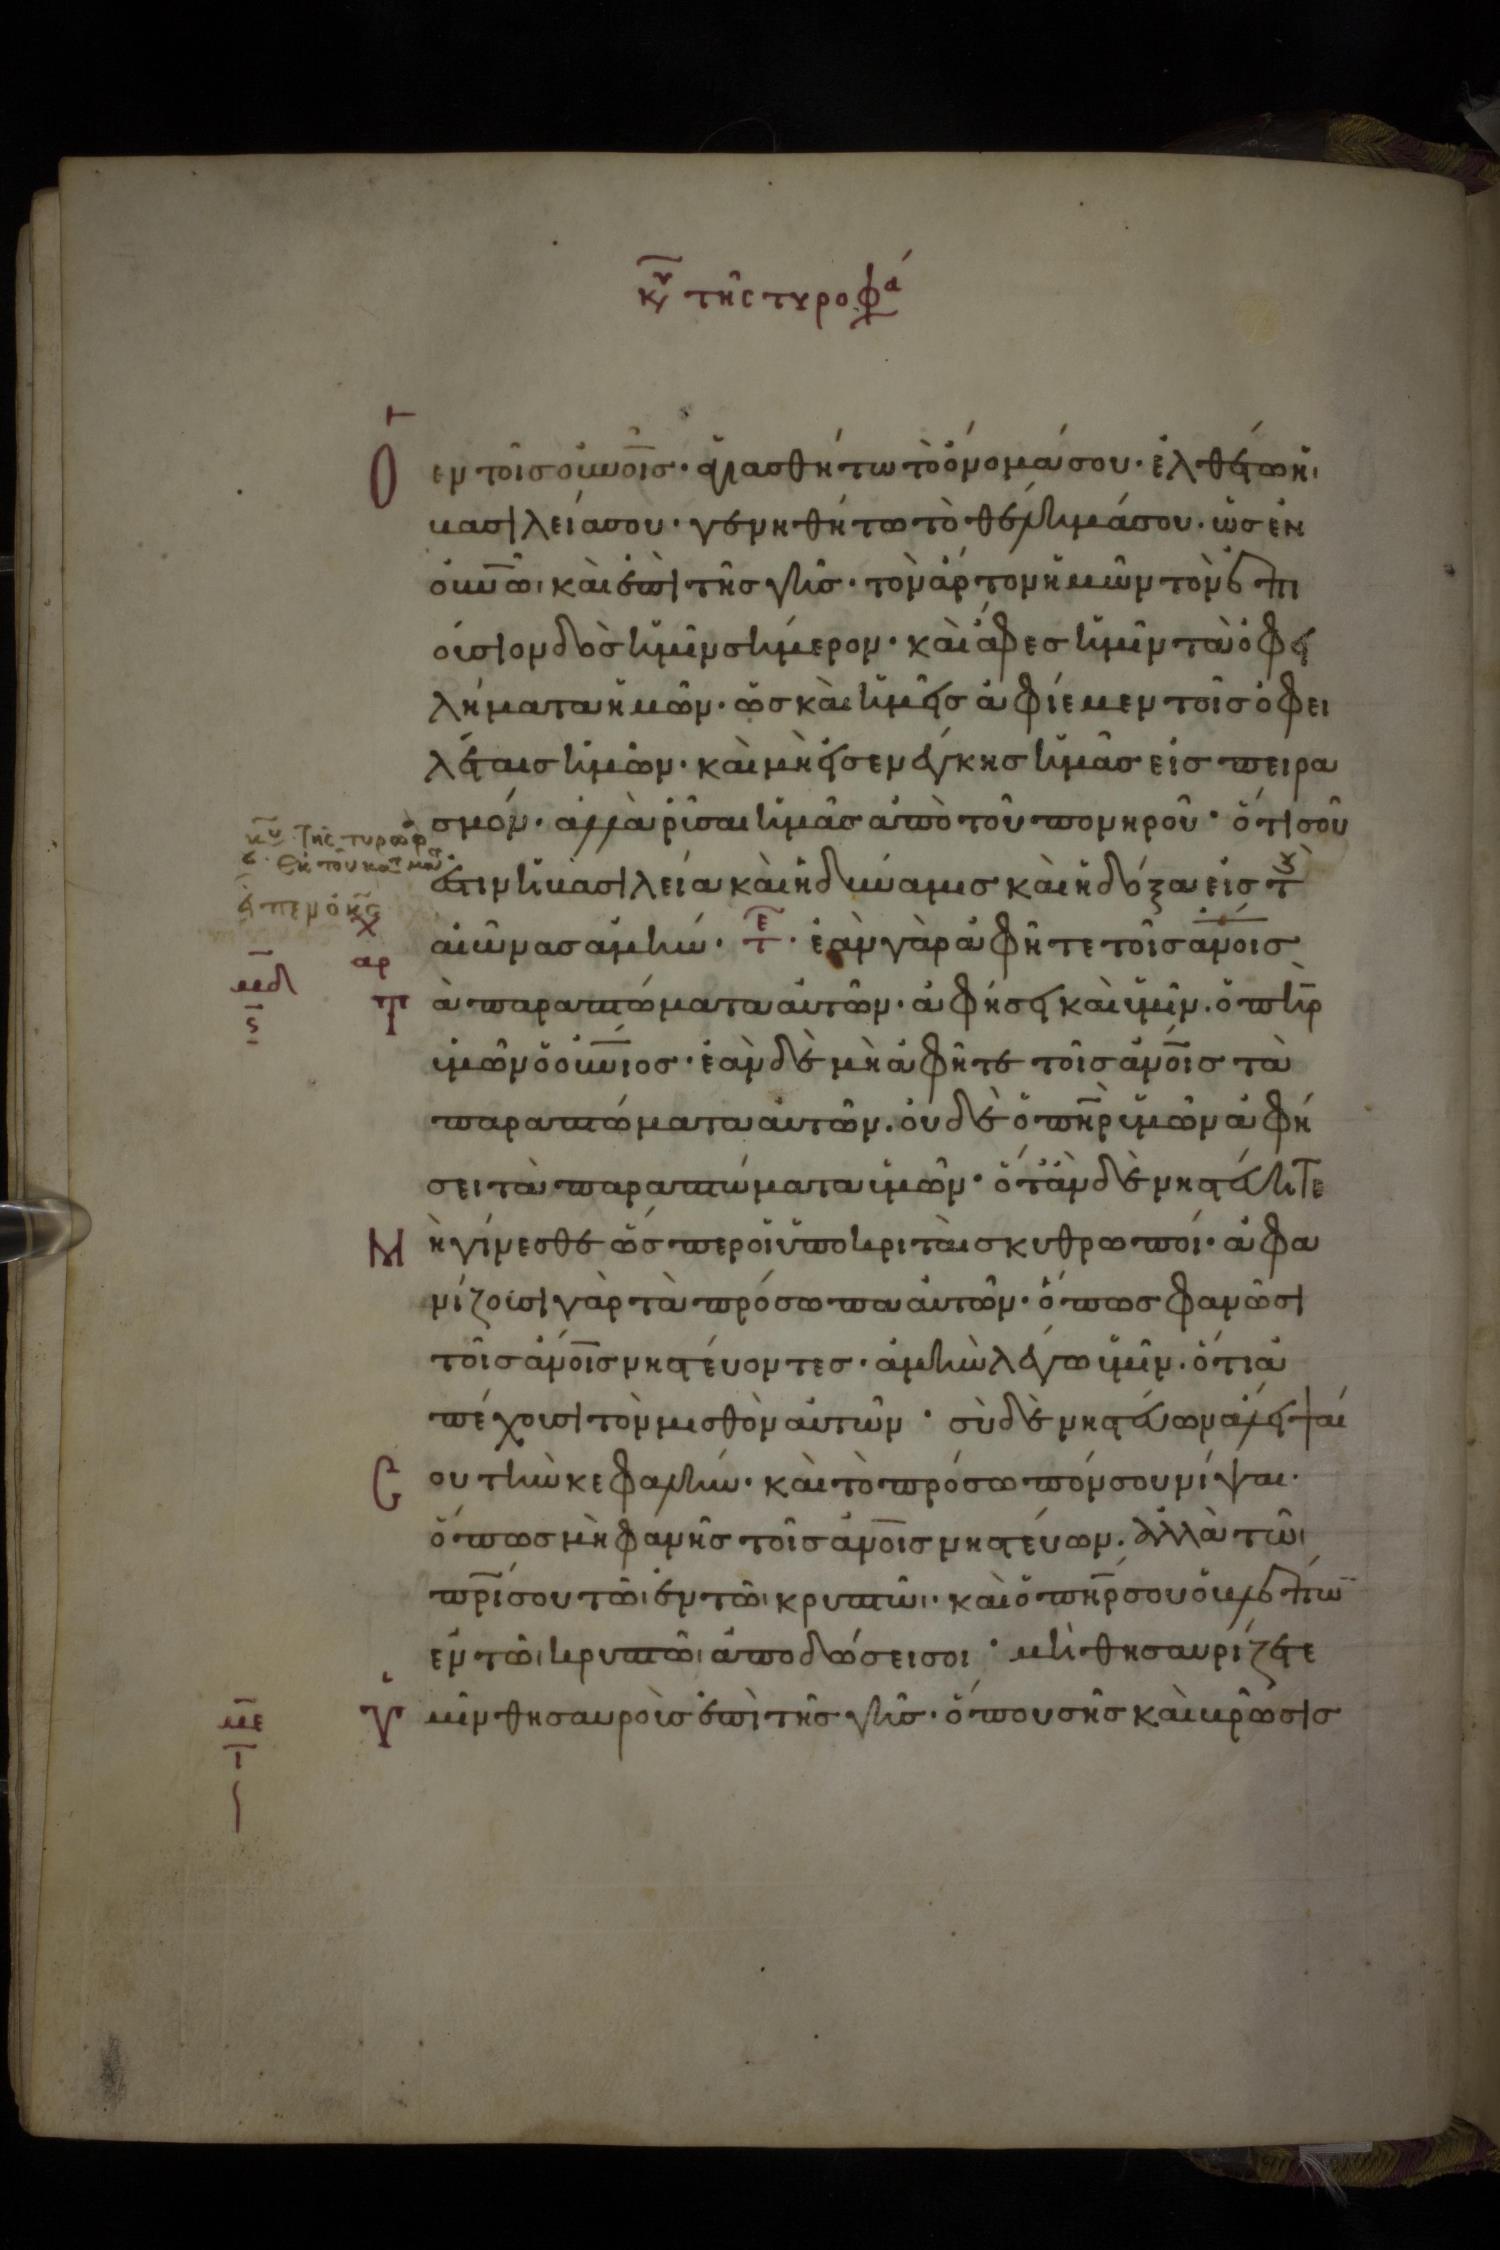 κυ τῆς τυροφά
Ο ἐν τοῖς οὐνοῖς· ἁγιασθήτω τὸ ὄνομά σου· ἐλθέτω ἡ
βασιλεία σου· γενηθήτω τὸ θέλημά σου· ὡς ἐν
οὐνῶ· καὶ ἐπὶ τῆς γῆς· τὸν ἄρτον ἡμῶν τὸν ἐπι
ούσιον δὸς ἡμῖν σήμερον· καὶ ἄφες ἡμῖν τὰ ὀφει
λήματα ἡμῶν· ὡς καὶ ἡμεῖς ἀφίεμεν τοῖς ὀφει
λέταις ἡμῶν· καὶ μὴ εἰσενέγκης ἡμᾶς εἰς πειρα
σμόν· ἀλλὰ ῥῦσαι ἡμᾶς ἀπὸ τοῦ πονηροῦ· ὅτι σοῦ
κυ τῆς τυροφ
ἐκ τοῦ κατ μα
ἐστιν ἡ βασιλεία καὶ ἡ δύναμις καὶ ἡ δόξα εἰς τ
εἶπεν ὁ κς
αἰῶνας ἀμήν· τε· ἐὰν γὰρ ἀφῆτε τοῖς ἀνοις
αρ
μδ
ς
Τ ὰ παραπτώματα αὐτῶν· ἀφήσει καὶ ὑμῖν· ὁ πηρ
ὑμῶν ὁ οὐνιος· ἐὰν δὲ μὴ ἀφῆτε τοῖς ἀνοις τὰ
παραπτώματα αὐτῶν· οὐδὲ ὁ πηρ ὑμῶν ἀφή
σει τὰ παραπτώματα ὑμῶν· ὅταν δὲ νηστεύητε
Μ ὴ γίνεσθε ὥσπερ οἱ ὑποκριταὶ σκυθρωποί· ἀφα
νίζουσι γὰρ τὰ πρόσωπα αὐτῶν· ὅπως φανῶσι
τοῖς ἀνοις νηστεύοντες· ἀμὴν λέγω ὑμῖν· ὅτι ἀ
πέχουσι τὸν μισθὸν αὐτῶν· σὺ δὲ νηστεύων ἄλειψαί
Σ ου τὴν κεφαλήν· καὶ τὸ πρόσωπόν σου νίψαι·
ὅπως μὴ φανῆς τοῖς ἀνοις νηστεύων· ἀλλὰ τῶι
πρί σου τῶι ἐν τῶι κρυπτῶι· καὶ ὁ πηρ σου ὁ βλέπω
ἐν τῶι κρυπτῶι ἀποδώσει σοι· μὴ θησαυρίζετε
με
ι
Ὑ μῖν θησαυροὺς ἐπὶ τῆς γῆς· ὅπου σὴς καὶ βρῶσις